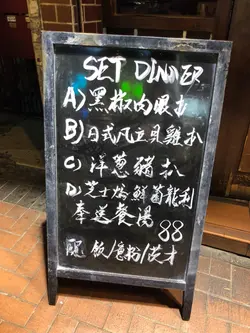 SET DINNER
A) 黑椒肉眼扒
B) 日式風立貝雞扒
C) 洋蔥豬扒
D) 芝士焗鮮茄龍利
季送餐湯 88
配 飯/意粉/芠才